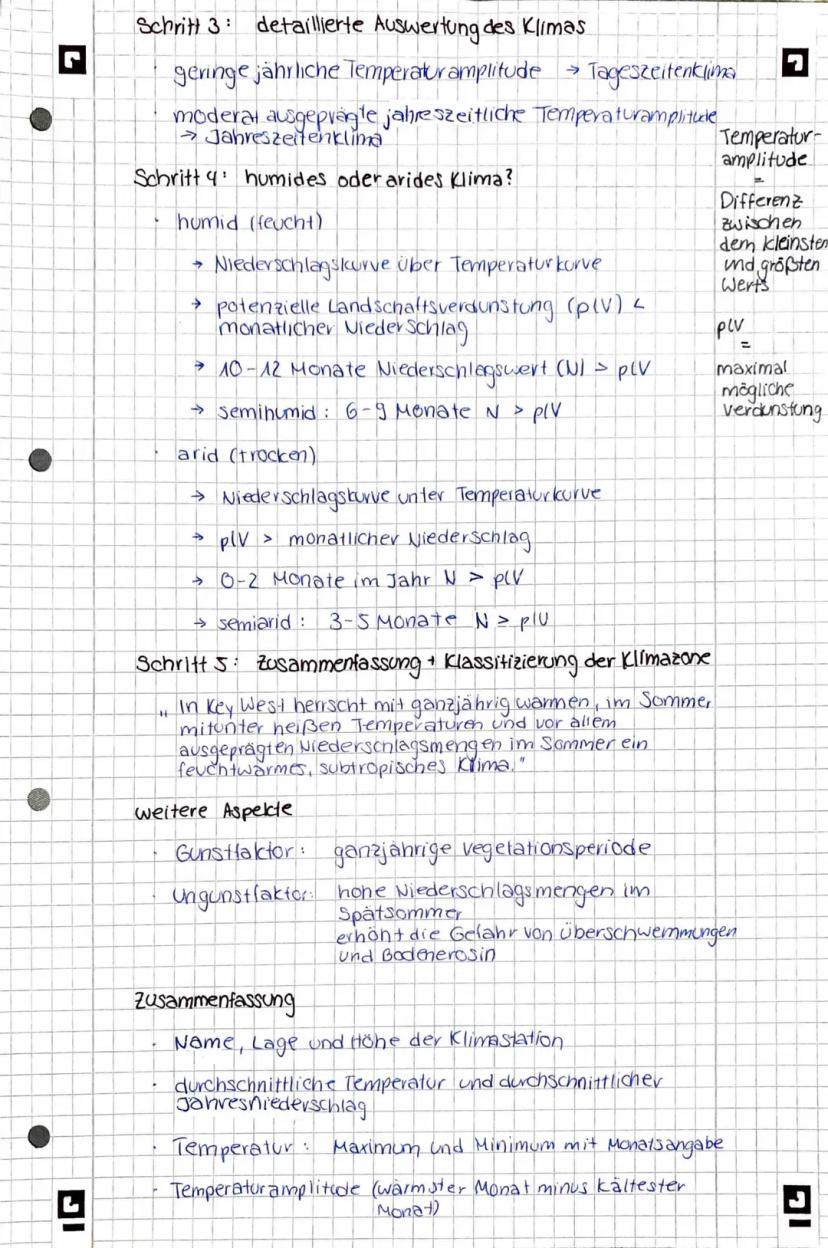 Schritt 3: detaillierte Auswertung des Klimas
· geringe jährliche Temperaturamplitude → Tageszeitenklima
· moderat ausgeprägte jahreszeitliche Temperaturamplitude
→ Jahreszeitenklima
Temperatur-
amplitude
=
Differenz
zwischen
dem kleinsten
und größten
Werts
plV
=
maximal
mögliche
verdunstung
Schritt 4: humides oder arides Klima?
· humid (feucht)
→ Niederschlagskurve über Temperaturkurve
→ potenzielle Landschaftsverdunstung (plV) <
monatlicher Niederschlag
→ 10-12 Monate Niederschlagswert (N) > plV
→ semihumid: 6-9 Monate N > plV
· arid (trocken)
→ Niederschlagskurve unter Temperaturkurve
→ plV > monatlicher Niederschlag
→ 0-2 Monate im Jahr N > plV
→ semiarid: 3-5 Monate N > plV
Schritt 5: Zusammenfassung + Klassifizierung der Klimazone
„In Key West herrscht mit ganzjährig warmen, im Sommer
mitunter heißen Temperaturen und vor allem
ausgeprägten Niederschlagsmengen im Sommer ein
feuchtwarmes, subtropisches Klima."
weitere Aspekte
· Gunstfaktor: ganzjährige vegetationsperiode
· Ungunstfaktor: hohe Niederschlagsmengen im
Spätsommer
erhöht die Gefahr von Überschwemmungen
und Bodenerosin
Zusammenfassung
· Name, Lage und Höhe der Klimastation
· durchschnittliche Temperatur und durchschnittlicher
Jahresniederschlag
· Temperatur: Maximum und Minimum mit Monatsangabe
· Temperaturamplitude (wärmster Monat minus kältester
Monat)